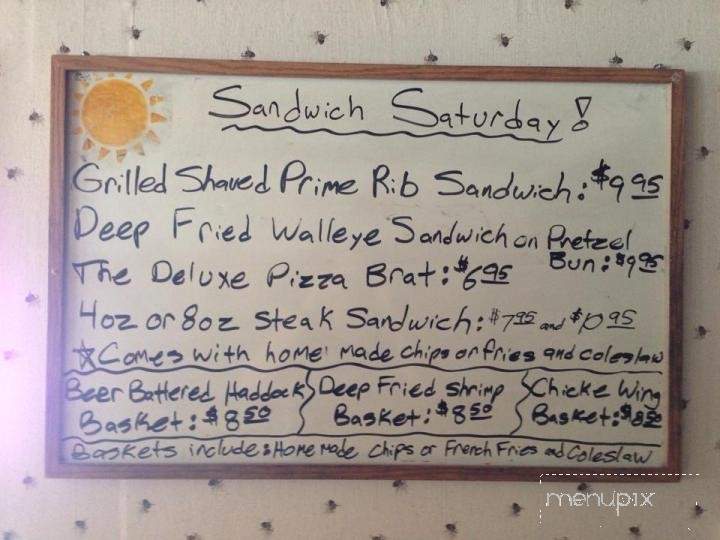 Sandwich Saturday!
Grilled Shaved Prime Rib Sandwich: $9 95
Deep Fried Walleye Sandwich on Pretzel
Bun: $9 95
The Deluxe Pizza Brat: $6 95
4oz or 8oz Steak Sandwich: $7 95 and $10 95
☆Comes with home made chips or fries and coleslaw
Beer Battered Haddock
Basket: $8 50
Deep Fried Shrimp
Basket: $8 50
Chicke Wing
Basket: $8 50
Baskets include: Home made Chips or French Fries and Coleslaw
menupix